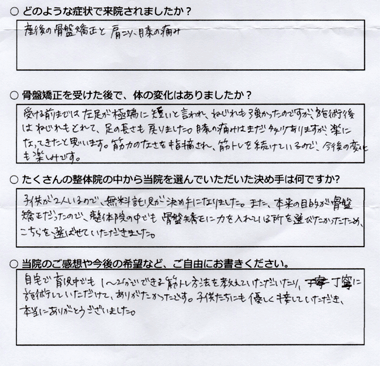 ○ どのような症状で来院されましたか？
産後の骨盤矯正と 肩こり、腰の痛み
○ 骨盤矯正を受けた後で、体の変化はありましたか？
受ける前までは左足が極端に短いと言われ、ねじれも強かったのですが、施術後
はねじれもとれて、足の長さも戻りました。腰の痛みはまだ少々ありますが、楽に
なってきたと思います。筋力のなさを指摘され、筋トレを続けているので、今後の変化
も楽しみです。
○ たくさんの整体院の中から当院を選んでいただいた決め手は何ですか？
子供が2人いるので、無料託児が決め手になりました。また、本来の目的が骨盤
矯正だったので、整体院の中でも 骨盤矯正に力を入れている所を選びたかったため、
こちらを選ばせていただきました。
○ 当院のご感想や今後の希望など、ご自由にお書きください。
自宅で育児中でも 1〜2分でできる筋トレ方法を教えていただいたり、丁寧に
施術していただけて、ありがたかったです。子供たちにも優しく接していただき、
本当にありがとうございました。